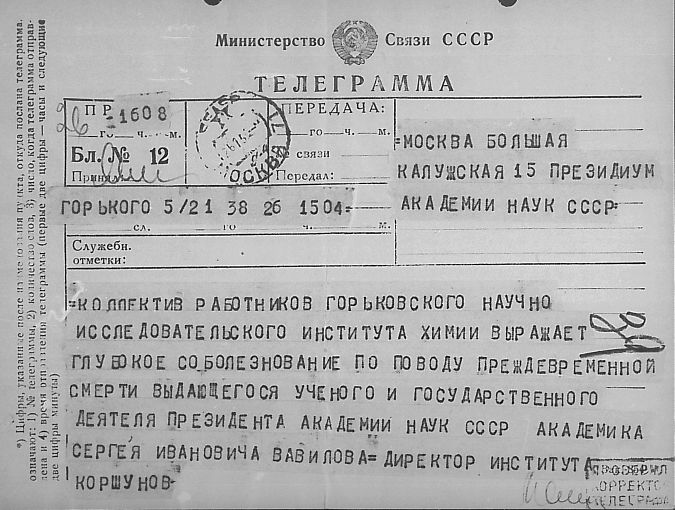 Министерство Связи СССР
ТЕЛЕГРАММА
ПР
26 =1608
го ч. м.
Бл. № 12
МОСКВА
ПЕРЕДАЧА:
го ч. м.
связи
Передал:
=МОСКВА БОЛЬШАЯ
КАЛУЖСКАЯ 15 ПРЕЗИДИУМ
АКАДЕМИИ НАУК СССР=
ГОРЬКОГО 5/21 38 26 1504=
сл. го ч. м.
Служебн.
отметки:
=КОЛЛЕКТИВ РАБОТНИКОВ ГОРЬКОВСКОГО НАУЧНО
ИССЛЕДОВАТЕЛЬСКОГО ИНСТИТУТА ХИМИИ ВЫРАЖАЕТ
ГЛУБОКОЕ СОБОЛЕЗНОВАНИЕ ПО ПОВОДУ ПРЕЖДЕВРЕМЕННОЙ
СМЕРТИ ВЫДАЮЩЕГОСЯ УЧЕНОГО И ГОСУДАРСТВЕННОГО
ДЕЯТЕЛЯ ПРЕЗИДЕНТА АКАДЕМИИ НАУК СССР АКАДЕМИКА
СЕРГЕЯ ИВАНОВИЧА ВАВИЛОВА= ДИРЕКТОР ИНСТИТУТА
КОРШУНОВ=
ПРОВЕРИЛ
КОРРЕКТОР
ТЕЛЕГРАФА
*) Цифры, указанные после названия пункта, откуда послана телеграмма,
означают: 1) № телеграммы, 2) количество слов, 3) число, когда телеграмма отправ-
лена и 4) время отправления телеграммы (первые две цифры — часы и следующие
две цифры минуты)